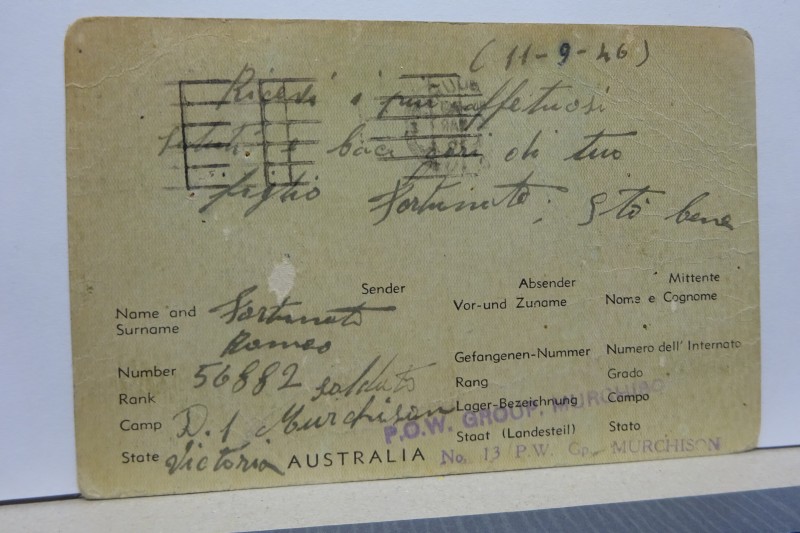 (11-9-46)
Ricevi i più affettuosi
saluti e baci cari di tuo
figlio Fortunato; Stò bene
Sender Absender Mittente
Name and Surname Fortunato Romeo Vor-und Zuname Nome e Cognome
Number 56882 Gefangenen-Nummer Numero dell' Internato
Rank soldato Rang Grado
Camp D.1 Murchison Lager-Bezeichnung Campo
P.O.W. GROUP. MURCHISON
State Victoria AUSTRALIA Staat (Landesteil) Stato
No. 13 P.W. Gp. MURCHISON